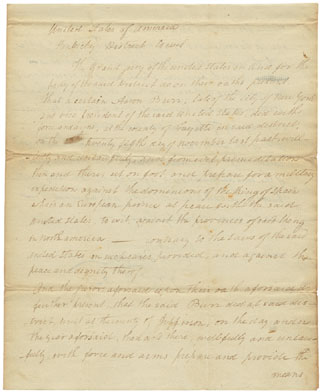 United States of America
Kentucky District Towit
The grand jury of the united states in and for the
body of the said district upon their oaths present
that a certain Aaron Burr, late of the city of New York
and vice President of the said united states, did with
force and arms, at the county of in said district,
on the twenty fifth day of november last past, wil
and from evil premeditation
then and there set on foot and prepare for a military
expedition against the dominions of the king of Spain
who is an European prince at peace with the said
united states to wit, against the provinces of
in north america contrary to the laws of the said
united States in such case provided, and against the
peace and dignity thereof
And the jurors aforesaid upon their oath aforesaid do
further present that the said Aaron Burr did at said dis
trict, to wit at the county of Jefferson, on the day and in
the year aforesaid, then and there, wilfully and unlaw
fully with force and arms prepare and provide the
means